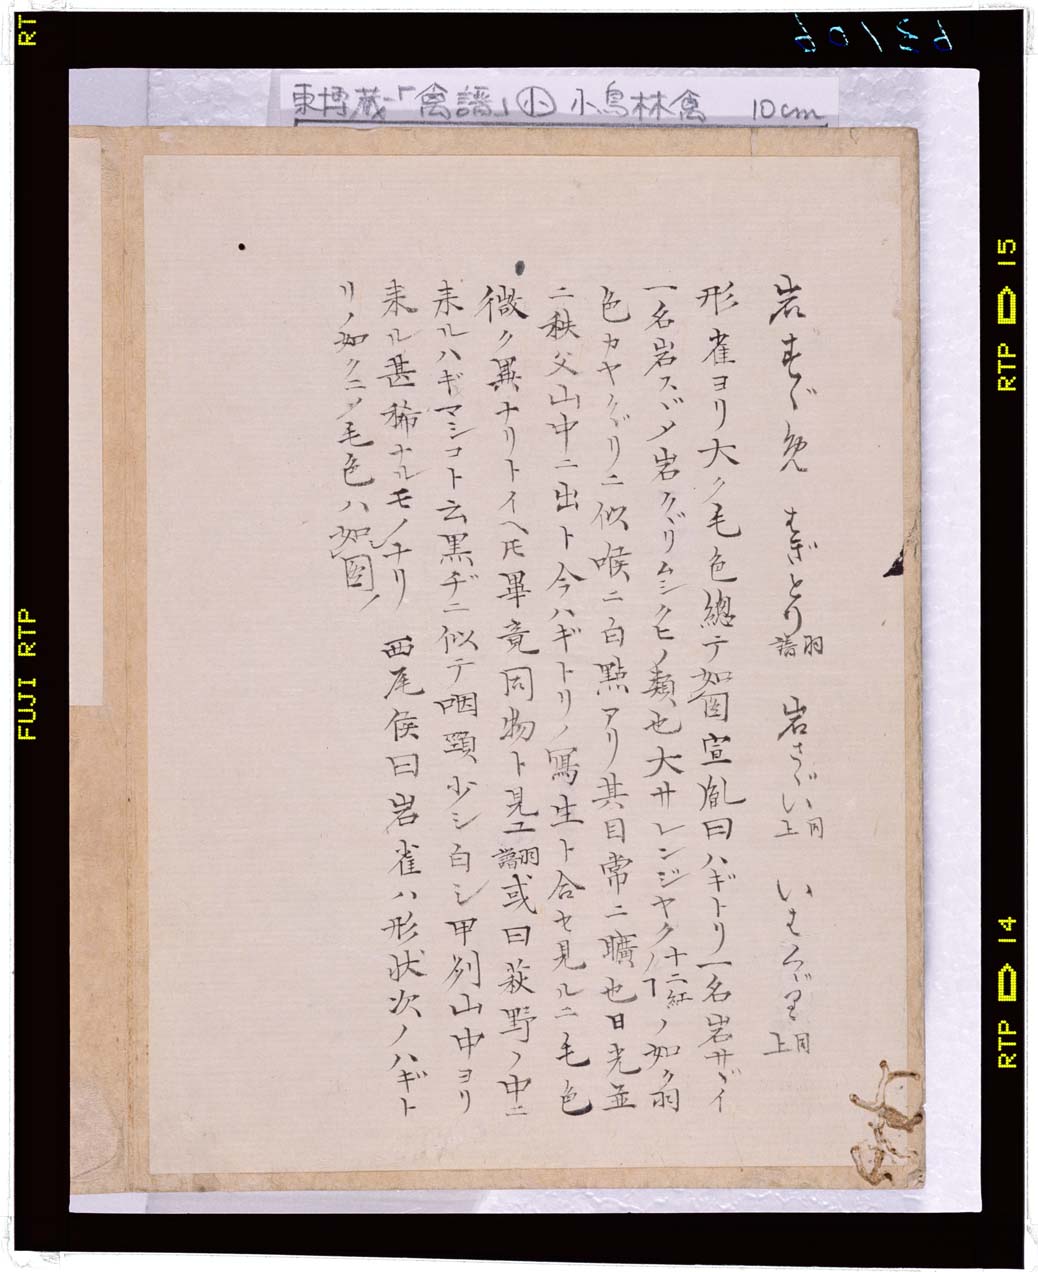 62106
東博蔵-「禽譜」小 小鳥林禽 10cm
岩すゞめ はぎとり 羽譜 岩さゞい 同上 いわくゞり 同上
形雀ヨリ大ク毛色總テ如圖宣胤曰ハギトリ一名岩サヾイ
一名岩スヾメ岩クヾリムシクヒノ類也大サレンジヤク十二紅ノヿノ如ク羽
色カヤクヾリニ似喉ニ白點アリ其目常ニ曠也日光並
ニ秩父山中ニ出ト今ハギトリノ寫生ト合セ見ルニ毛色
微ク異ナリトイヘ𪜈畢竟同物ト見エ羽譜或曰萩野ノ中ニ
来ルハギマシコト云黒ヂニ似テ咽頸少シ白シ甲列山中ヨリ
来ル甚稀ナルモノナリ 西尾侯曰岩雀ハ形状次ノハギト
リノ如クニメ毛色ハ如圖ノ
RTP 15
RTP 14
FUJI RTP
RT